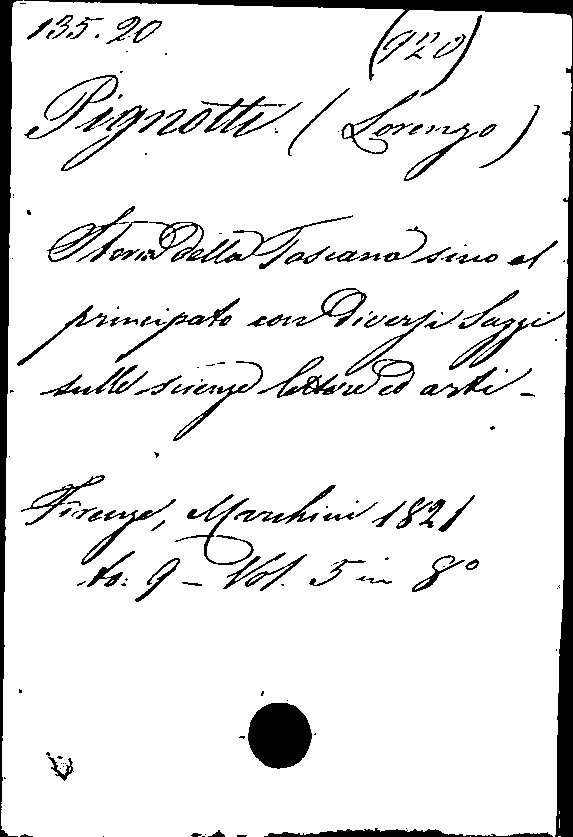 135.20 (920)
Pignotti (Lorenzo)
Storia della Toscana sino al
principato con diversi Saggi
sulle scienze lettere ed arti -
Firenze, Marchini 1821
to: 9 - Vol. 5 in 8º